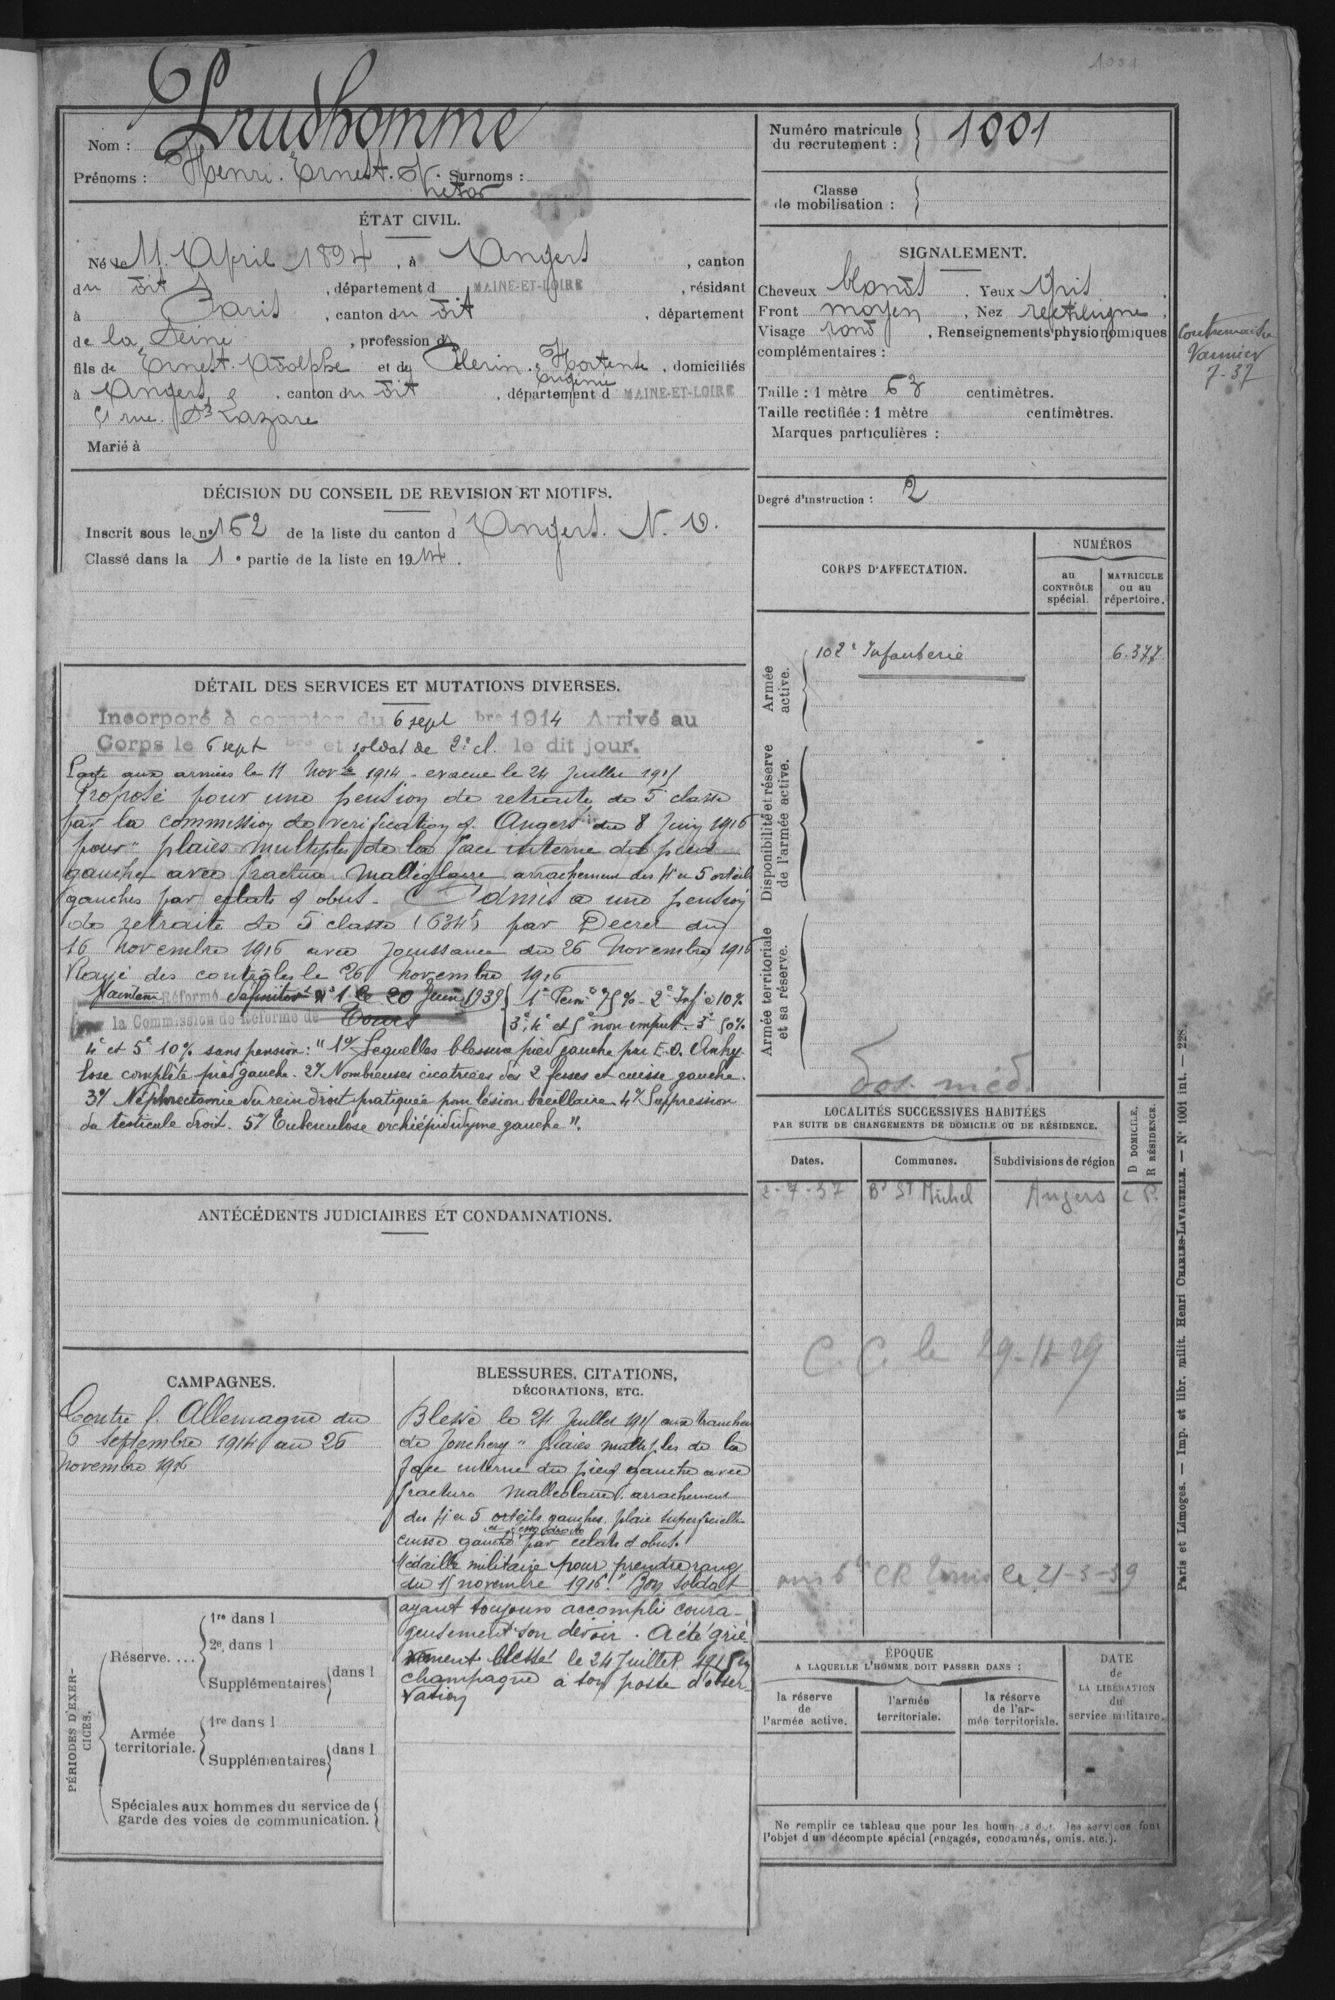 1001
Nom : Prudhomme
Prénoms : Henri. Ernest. Victor Surnoms :
ÉTAT CIVIL.
Né le 11. Avril 1894, à Angers, canton
du dit, département d MAINE-ET-LOIRE, résidant
à Paris, canton du dit, département
de la Seine, profession d
fils de Ernest. Adolphe et de Pelerin. Hortense Eugénie, domiciliés
à Angers, canton du dit, département d MAINE-ET-LOIRE
rue. St Lazare
Marié à
DÉCISION DU CONSEIL DE REVISION ET MOTIFS.
Inscrit sous le no 162 de la liste du canton d Angers. N. O.
Classé dans la 1e partie de la liste en 1914.
DÉTAIL DES SERVICES ET MUTATIONS DIVERSES.
Incorporé à compter du 6 sept bre 1914 Arrivé au
Corps le 6 sept bre et soldat de 2e cl. le dit jour.
Parti aux armées le 11 Novbre 1914 - evacué le 24 Juillet 1915
Proposé pour une pension de retraite de 5 classe
par la commission de verification d. Angers du 8 Juin 1916
pour " plaies multiples de la face interne du pied
gauche avec fracture malléolaire arrachement des 4 et 5 orteils
gauches par eclats d obus. Admis a une pension
de retraite de 5 classe (634f) par Decret du
16 Novembre 1916 avec jouissance du 26 Novembre 1916
Rayé des contrôles le 26 Novembre 1916
Maintenu Réformé définitivt No 1 le 20 Juin 1939 { 1e Permt 75% - 2e Inf. à 10%
par la Commission de Réforme de Tours { 3e, 4e et 5e non imput. 3e 50%
4e et 5e 10% sans pension : " 1o/ Sequelles blessure pied gauche par E.O. Anky-
lose complète pied gauche. 2o/ Nombreuses cicatrices des 2 fesses et cuisse gauche.
3o/ Néphrectomie du rein droit pratiquée pour lésion bacillaire. 4o/ Suppression
du testicule droit. 5o/ Tuberculose orchiépididyme gauche ".
ANTÉCÉDENTS JUDICIAIRES ET CONDAMNATIONS.
CAMPAGNES.
Contre l. Allemagne du
6 Septembre 1914 au 26
Novembre 1916
BLESSURES, CITATIONS,
DÉCORATIONS, ETC.
Blessé le 24 Juillet 1915 aux tranchées
de Jonchery " plaies multiples de la
face interne du pied gauche avec
fracture malleolaire. arrachement
des 4 et 5 orteils gauches. plaie superficielle
et fesse droite
cuisse gauche par eclats d obus.
Médaille militaire pour prendre rang
du 15 novembre 1916. " Bon soldat
ayant toujours accompli coura-
geusement son devoir. A été griè-
vement blessé le 24 Juillet 1915 en
champagne à son poste d'obser-
vation
PÉRIODES D'EXER-
CICES.
Réserve....
1re dans l
2e dans l
Supplémentaires
dans l
Armée
territoriale.
1re dans l
Supplémentaires
dans l
Spéciales aux hommes du service de
garde des voies de communication.
Numéro matricule
du recrutement : 1001
Classe
de mobilisation :
SIGNALEMENT.
Cheveux blonds. Yeux Gris
Front moyen, Nez rectiligne,
Visage rond, Renseignements physionomiques
complémentaires :
Taille : 1 mètre 63 centimètres.
Taille rectifiée : 1 mètre centimètres.
Marques particulières :
Degré d'instruction : 2
Contremaitre
Vannier
7-37
CORPS D'AFFECTATION.
NUMÉROS
au
CONTRÔLE
spécial.
MATRICULE
OU AU
répertoire.
Armée
active.
102e Infanterie 6.377
Disponibilité et réserve
de l'armée active.
Armée territoriale
et sa réserve.
Dos. méd.
LOCALITÉS SUCCESSIVES HABITÉES
PAR SUITE DE CHANGEMENTS DE DOMICILE OU DE RÉSIDENCE.
Dates.
Communes.
Subdivisions de région
D DOMICILE.
R RÉSIDENCE.
2-7-37 Bd St Michel Angers
C. C. le 29-11-29
CR Tours le 21-3-39
ÉPOQUE
A LAQUELLE L'HOMME DOIT PASSER DANS :
la réserve
de
l'armée active.
l'armée
territoriale.
la réserve
de l'ar-
mée territoriale.
DATE
de
LA LIBÉRATION
du
service militaire.
Ne remplir ce tableau que pour les hommes dont les services font
l'objet d'un décompte spécial (engagés, condamnés, omis, etc.).
Paris et Limoges. — Imp. et libr. milit. Henri CHARLES-LAVAUZELLE. — No 1001 int. — 228.